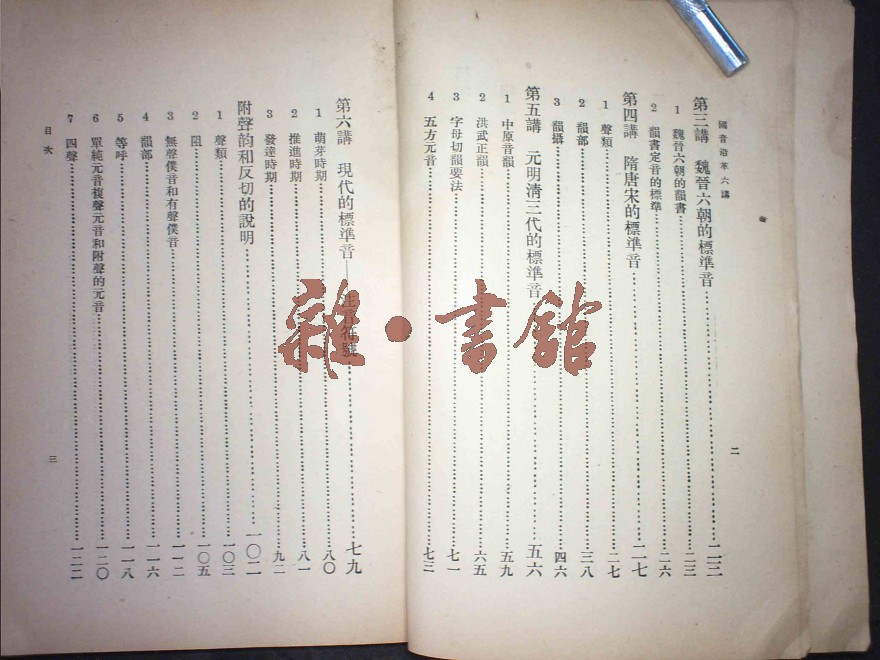 國音沿革六講
第三講　魏晉六朝的標準音……二三
1　魏晉六朝的韻書……二三
2　韻書定音的標準……二六
第四講　隋唐宋的標準音……二七
1　聲類……二七
2　韻部……三八
3　韻攝……四六
第五講　元明清三代的標準音……五六
1　中原音韻……五九
2　洪武正韻……六五
3　字母切韻要法……七一
4　五方元音……七三
二
第六講　現代的標準音——注音符號……七九
1　萌芽時期……八〇
2　推進時期……八一
3　發達時期……九二
附聲韵和反切的說明……一〇二
1　聲類……一〇三
2　阻……一〇五
3　無聲僕音和有聲僕音……一一二
4　韻部……一一六
5　等呼……一一八
6　單純元音複聲元音和附聲的元音……一二〇
7　四聲……一二二
目次
三
雜·書館